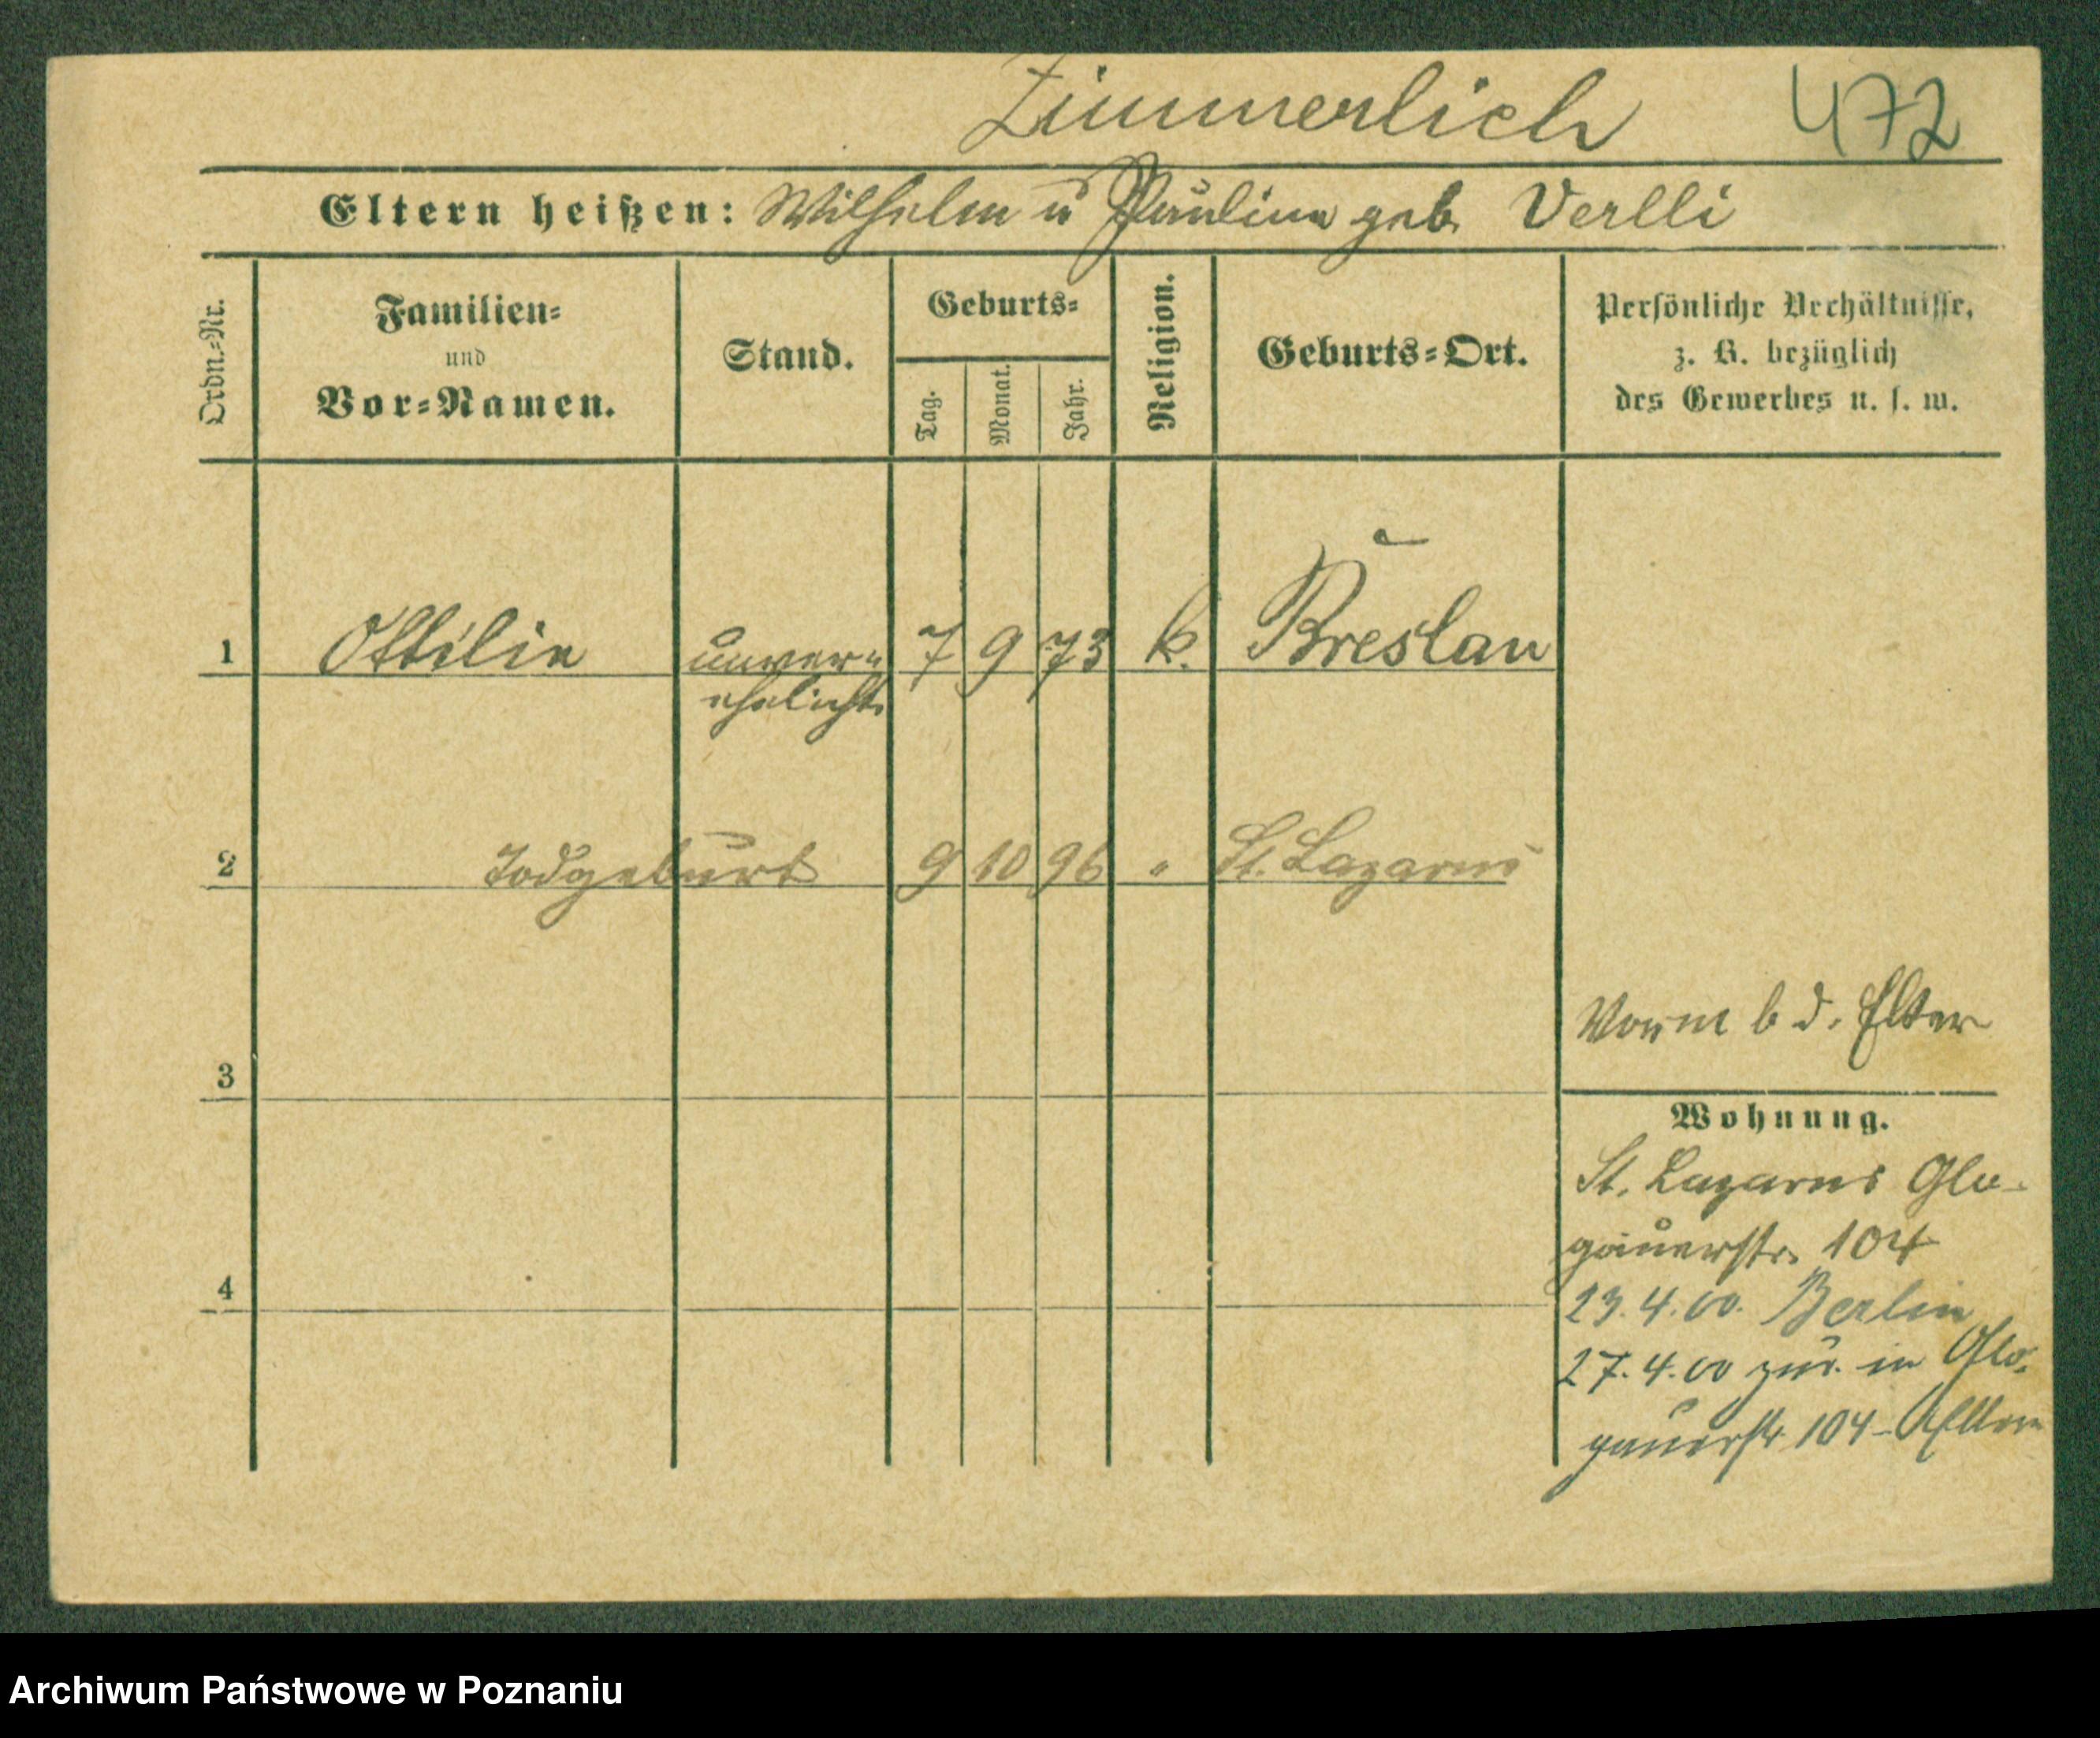 Zimmerlich 472
Eltern heißen: Wilhelm u Pauline geb. Verlli
Ordn.-Nr.
Familien-
und
Vor-Namen.
Stand.
Geburts-
Tag.
Monat.
Jahr.
Religion.
Geburts-Ort.
Persönliche Verhältnisse,
z. B. bezüglich
des Gewerbes u. s. w.
1 Ottilie unver- 7 9 73 k. Breslau
ehelicht.
2 Todgeburt 9 10 96 " St. Lazarus
b d. Elter
3
Wohnung.
St. Lazarus Glo-
gauerstr. 104
4
23.4.00. Berlin
27.4.00 zur. in Glo-
gauerstr 104 - Eltern
Archiwum Państwowe w Poznaniu